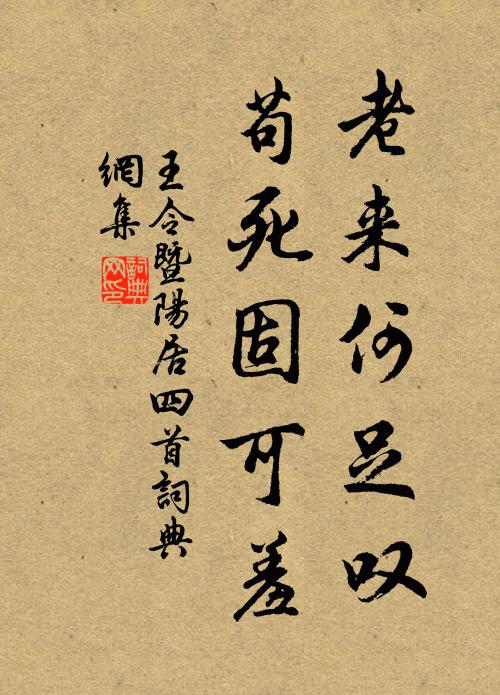 老来何足叹
苟死固可羞
王令暨陽居四首詞典
網集
詞典
网印